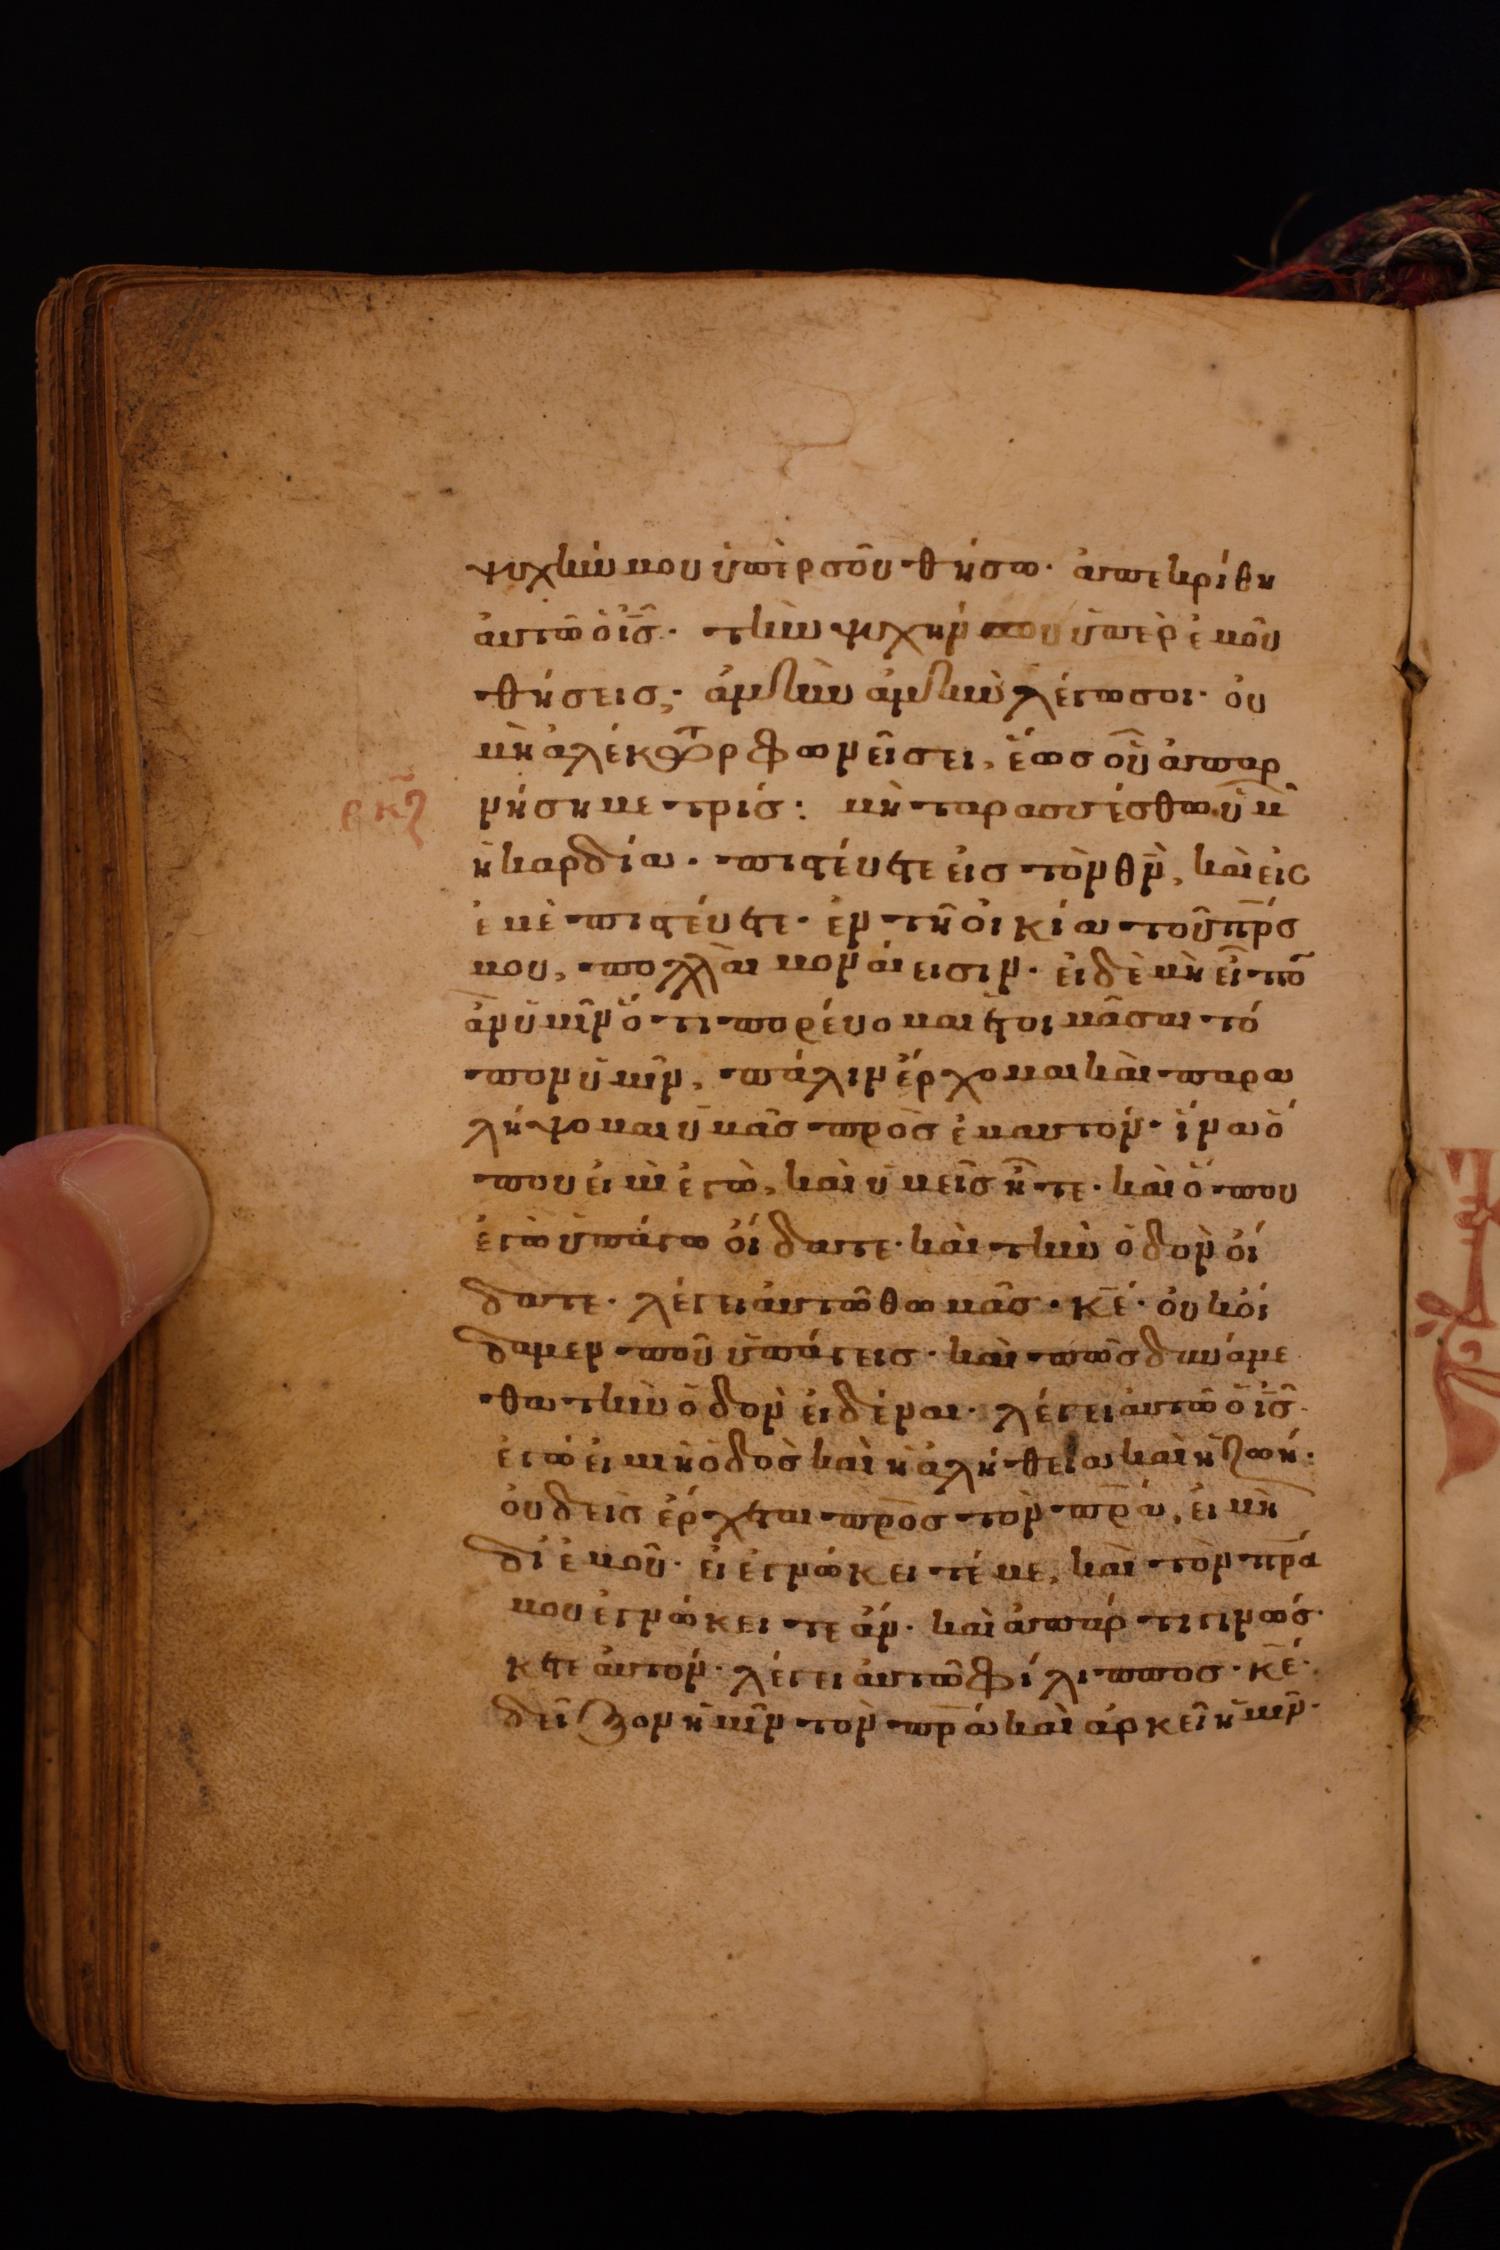 ψυχήν μου ὑπὲρ σοῦ θήσω· ἀπεκρίθη
αὐτῶ ὁ ι̅ς̅· τὴν ψυχήν σου ὑπὲρ ἐμοῦ
θήσεις; ἀμὴν ἀμὴν λέγω σοι· οὐ
μὴ ἀλέκτωρ φωνεῖσει, ἕως οὗ ἀπαρ
ρκζ
νήση με τρίς: μὴ ταρασσέσθω ὑμ
ἡ καρδία· πιστεύετε εἰς τὸν θ̅ν̅, καὶ εἰς
ἐμὲ πιστεύετε· ἐν τῆ οἰκία τοῦ π̅ρ̅ς
μου, πολλαὶ μοναί εισιν· εἰ δὲ μὴ εἶπο
ἂν ὑμῖν ὅτι πορεύομαι ἑτοιμᾶσαι τό
πον ὑμῖν, πάλιν ἔρχομαι καὶ παρα
λήψομαι ὑμᾶς πρὸς ἐμαυτόν· ἵνα ὅ
που εἰμὶ ἐγὼ, καὶ ὑμεῖς ἦτε· καὶ ὅπου
ἐγὼ ὑπάγω οἴδατε· καὶ τὴν ὁδὸν οἴ
δατε· λέγει αὐτῶ θωμᾶς· κ̅ε̅· οὐκ οἴ
δαμεν ποῦ ὑπάγεις· καὶ πῶς δυνάμε
θα τὴν ὁδὸν εἰδέναι· λέγει αὐτῶ ὁ ι̅ς̅·
ἐγώ εἰμι ἡ ὁδὸς καὶ ἡ ἀλήθεια καὶ ἡ ζωή·
οὐδεὶς ἔρχεται πρὸς τὸν π̅ρ̅α, εἰ μὴ
δι ἐμοῦ· εἰ ἐγνώκειτέ με, καὶ τὸν π̅ρ̅α
μου ἐγνώκειτε ἄν· καὶ ἀπάρτι γινώσ
κετε αὐτόν· λέγει αὐτῶ φίλιππος· κ̅ε̅·
δεῖξον ἡμῖν τὸν π̅ρ̅α καὶ ἀρκεῖ ἡμῖν·